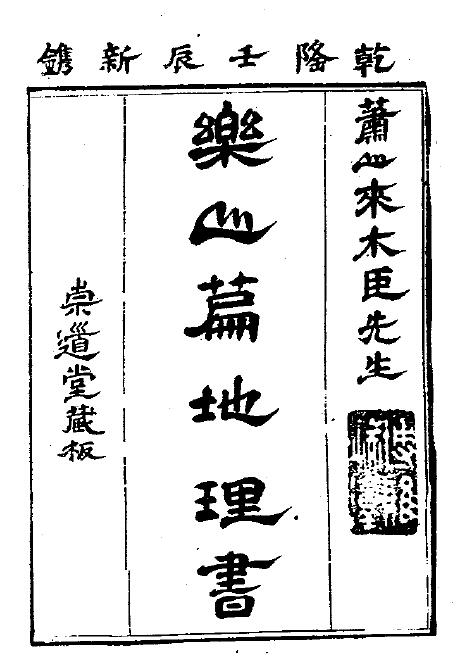 乾隆壬辰新鐫
蕭山來木臣先生
樂山篇地理書
崇道堂藏板